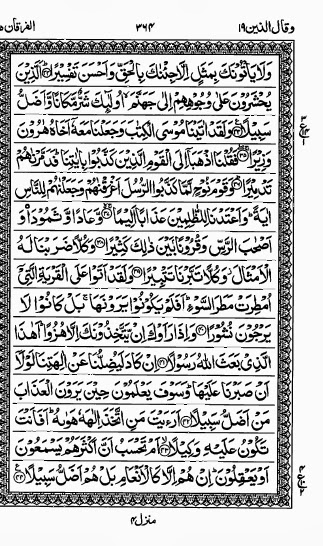 وقال الذين ١٩ ٣٦٤ الفرقان
وَلَا يَأْتُونَكَ بِمَثَلٍ إِلَّا جِئْنٰكَ بِالْحَقِّ وَأَحْسَنَ تَفْسِيرًا ﴿٣٣﴾ اَلَّذِينَ
يُحْشَرُونَ عَلٰى وُجُوهِهِمْ إِلٰى جَهَنَّمَ أُولٰٓئِكَ شَرٌّ مَّكَانًا وَّأَضَلُّ
سَبِيلًا ﴿٣٤﴾ وَلَقَدْ اٰتَيْنَا مُوسَى الْكِتٰبَ وَجَعَلْنَا مَعَهٗ أَخَاهُ هٰرُونَ
وَزِيرًا ﴿٣٥﴾ فَقُلْنَا اذْهَبَا إِلَى الْقَوْمِ الَّذِينَ كَذَّبُوا بِاٰيٰتِنَا فَدَمَّرْنٰهُمْ
تَدْمِيرًا ﴿٣٦﴾ وَقَوْمَ نُوحٍ لَّمَّا كَذَّبُوا الرُّسُلَ أَغْرَقْنٰهُمْ وَجَعَلْنٰهُمْ لِلنَّاسِ
اٰيَةً وَأَعْتَدْنَا لِلظّٰلِمِينَ عَذَابًا أَلِيمًا ﴿٣٧﴾ وَّعَادًا وَّثَمُودَا۟ وَ
أَصْحٰبَ الرَّسِّ وَقُرُونًا بَيْنَ ذٰلِكَ كَثِيرًا ﴿٣٨﴾ وَكُلًّا ضَرَبْنَا لَهُ
الْأَمْثَالَ وَكُلًّا تَبَّرْنَا تَتْبِيرًا ﴿٣٩﴾ وَلَقَدْ أَتَوْا عَلَى الْقَرْيَةِ الَّتِي
أُمْطِرَتْ مَطَرَ السَّوْءِ أَفَلَمْ يَكُونُوا يَرَوْنَهَا بَلْ كَانُوا لَا
يَرْجُونَ نُشُورًا ﴿٤٠﴾ وَإِذَا رَأَوْكَ إِنْ يَّتَّخِذُونَكَ إِلَّا هُزُوًا أَهٰذَا
الَّذِي بَعَثَ اللّٰهُ رَسُولًا ﴿٤١﴾ إِنْ كَادَ لَيُضِلُّنَا عَنْ اٰلِهَتِنَا لَوْلَا
أَنْ صَبَرْنَا عَلَيْهَا وَسَوْفَ يَعْلَمُونَ حِينَ يَرَوْنَ الْعَذَابَ
مَنْ أَضَلُّ سَبِيلًا ﴿٤٢﴾ أَرَءَيْتَ مَنِ اتَّخَذَ إِلٰهَهٗ هَوٰىهُ أَفَأَنْتَ
تَكُونُ عَلَيْهِ وَكِيلًا ﴿٤٣﴾ أَمْ تَحْسَبُ أَنَّ أَكْثَرَهُمْ يَسْمَعُونَ
أَوْ يَعْقِلُونَ إِنْ هُمْ إِلَّا كَالْأَنْعَامِ بَلْ هُمْ أَضَلُّ سَبِيلًا ﴿٤٤﴾
منزل ٤